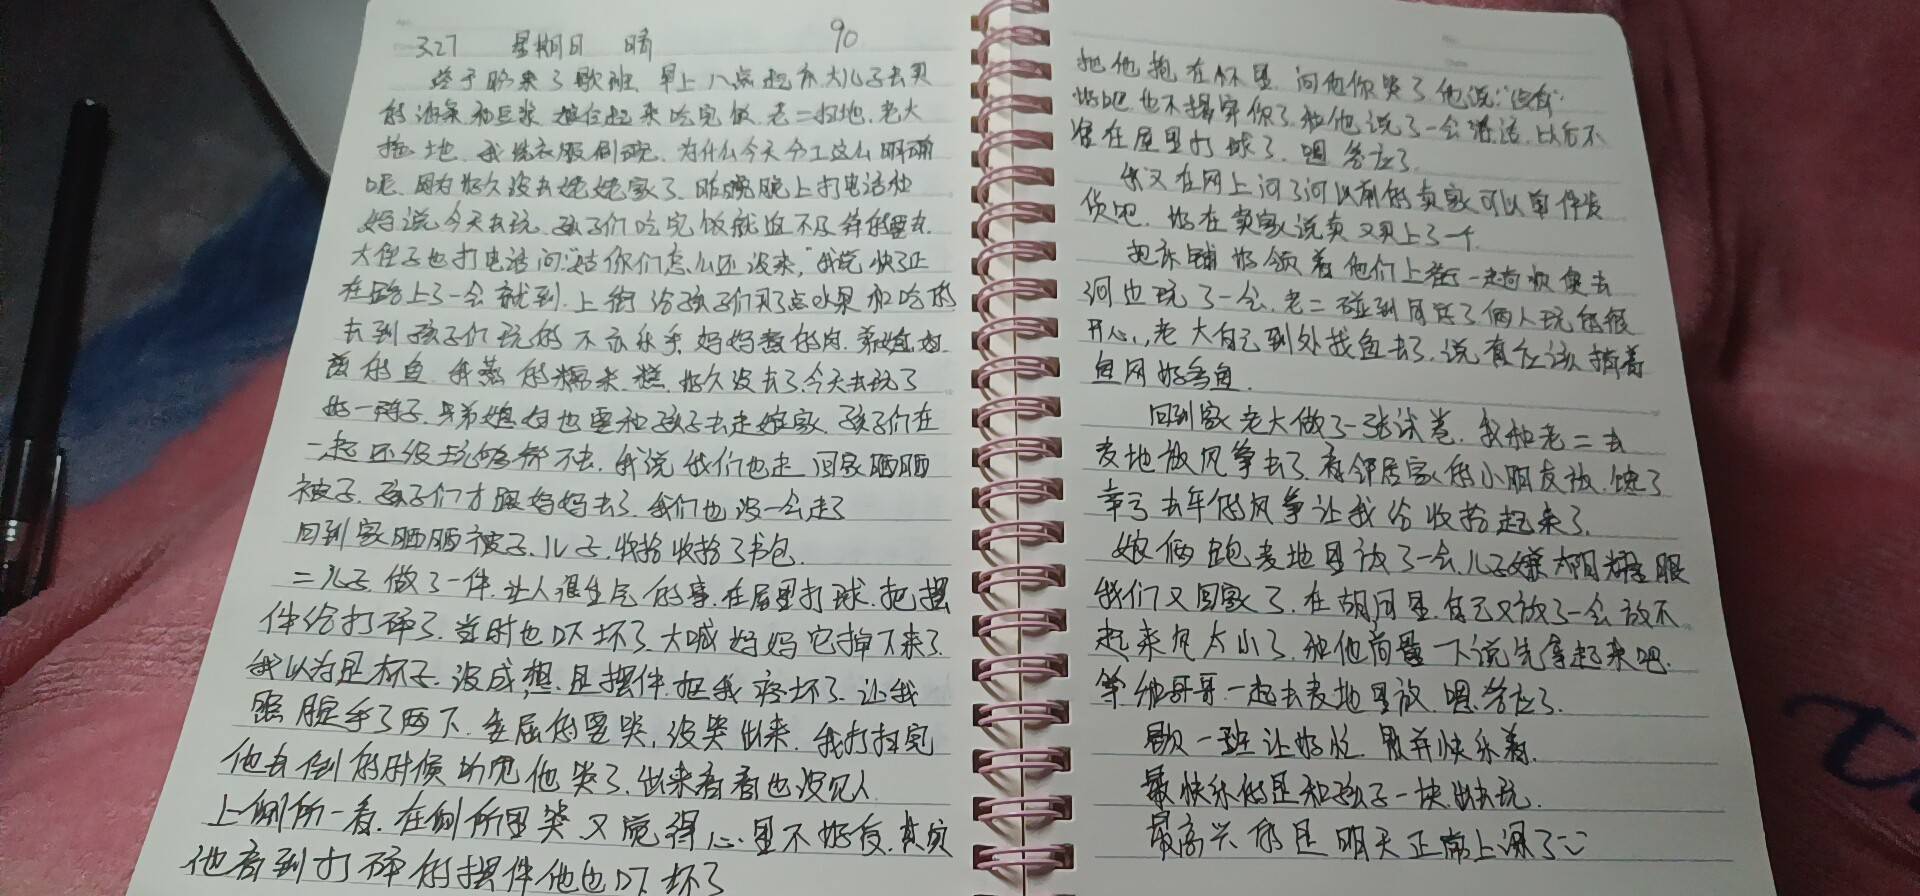 3.27 星期日 晴 90
终于盼来了歇班、早上八点起床.大儿子去买
的油条和豆浆 起来吃完饭.老二扫地.老大
拖地.我洗衣服刷碗.为什么今天分工这么明确
呢.因为好久没去姥姥家了.昨晚晚上打电话和
妈说今天去玩.孩子们吃完饭就迫不及待的要去.
大侄子也打电话问:"姑你们怎么还没来,"我说快了正
在路上了一会就到.上街给孩子们买了点水果和吃的
去到孩子们玩的不亦乐乎.妈妈煮的肉.弟媳妇.
的鱼.我蒸的糯米糕.好久没去了.今天去玩了
好一阵子.兄弟媳妇也要和孩子去走娘家.孩子们在
一起还没玩够都不去.我说我们也走.回家晒晒
被子.孩子们才跟妈妈去了.我们也没一会走了
回到家晒晒被子.儿子.收拾收拾了书包.
二儿子.做了一件.让人很生气的事.在屋里打球.把摆
件给打碎了.当时也吓坏了.大喊妈妈它掉下来了.
我以为是杯子.没成想.是摆件.把我疼坏了.让我
照腚手了两下.委屈的要哭,没哭出来.我打扫完
他去倒的时候听见他哭了.出来看看也没见人
上厕所一看.在厕所里哭又觉得心里不好受.其实
他看到打碎的摆件他也吓坏了
把他抱在怀里.问他你哭了.他说:"没有"
好吧.也不揭穿你了.和他说了一会话.以后不
准在屋里打球了.嗯答应了.
我又在网上问了问以前的卖家可以单件发
货吧.好在卖家说卖又买上了一个.
把床铺好领着他们上街一起取快递去
河边玩了一会.老二碰到同居了俩人玩的很
开心,老大自己到外找鱼去了.说真应该捎着
鱼网好捞鱼.
回到家老大做了一张试卷.我和老二去
麦地放风筝去了.看邻居家的小朋友放.馋了
幸亏去年的风筝让我给收拾起来了.
娘俩跑麦地里放了一会.儿子嫌太阳耀眼
我们又回家了.在胡同里.自己又放了一会放不
起来.风太小了.和他商量一下说先拿起来吧.
等和哥哥一起去麦地里放.嗯.答应了.
歇一班让好忙.累并快乐着.
最快乐的是和孩子一块出去玩.
最高兴的是明天正常上课了